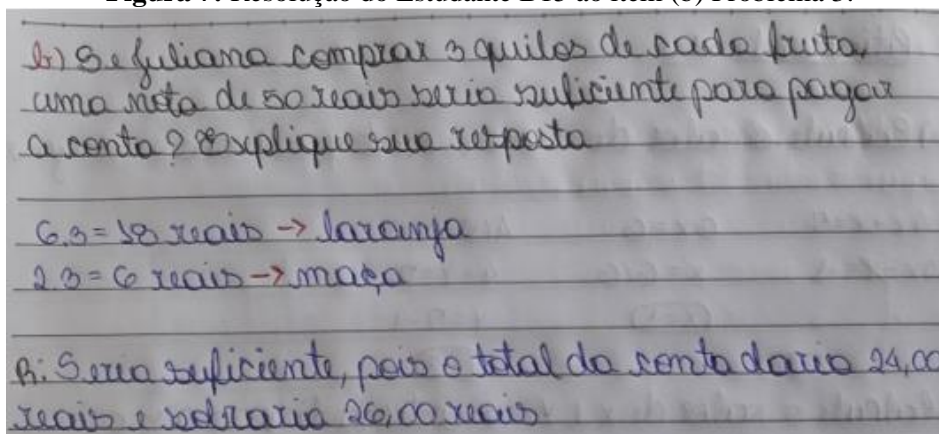 Figura 7. Resolução do Estudante B15 ao item (b) Problema 3.
b) Se Juliana comprar 3 quilos de cada fruta,
uma nota de 50 reais seria suficiente para pagar
a conta? Explique sua resposta
6.3 = 18 reais → laranja
2.3 = 6 reais → maça
R: Seria suficiente, pois o total da conta daria 24,00
reais e sobraria 26,00 reais